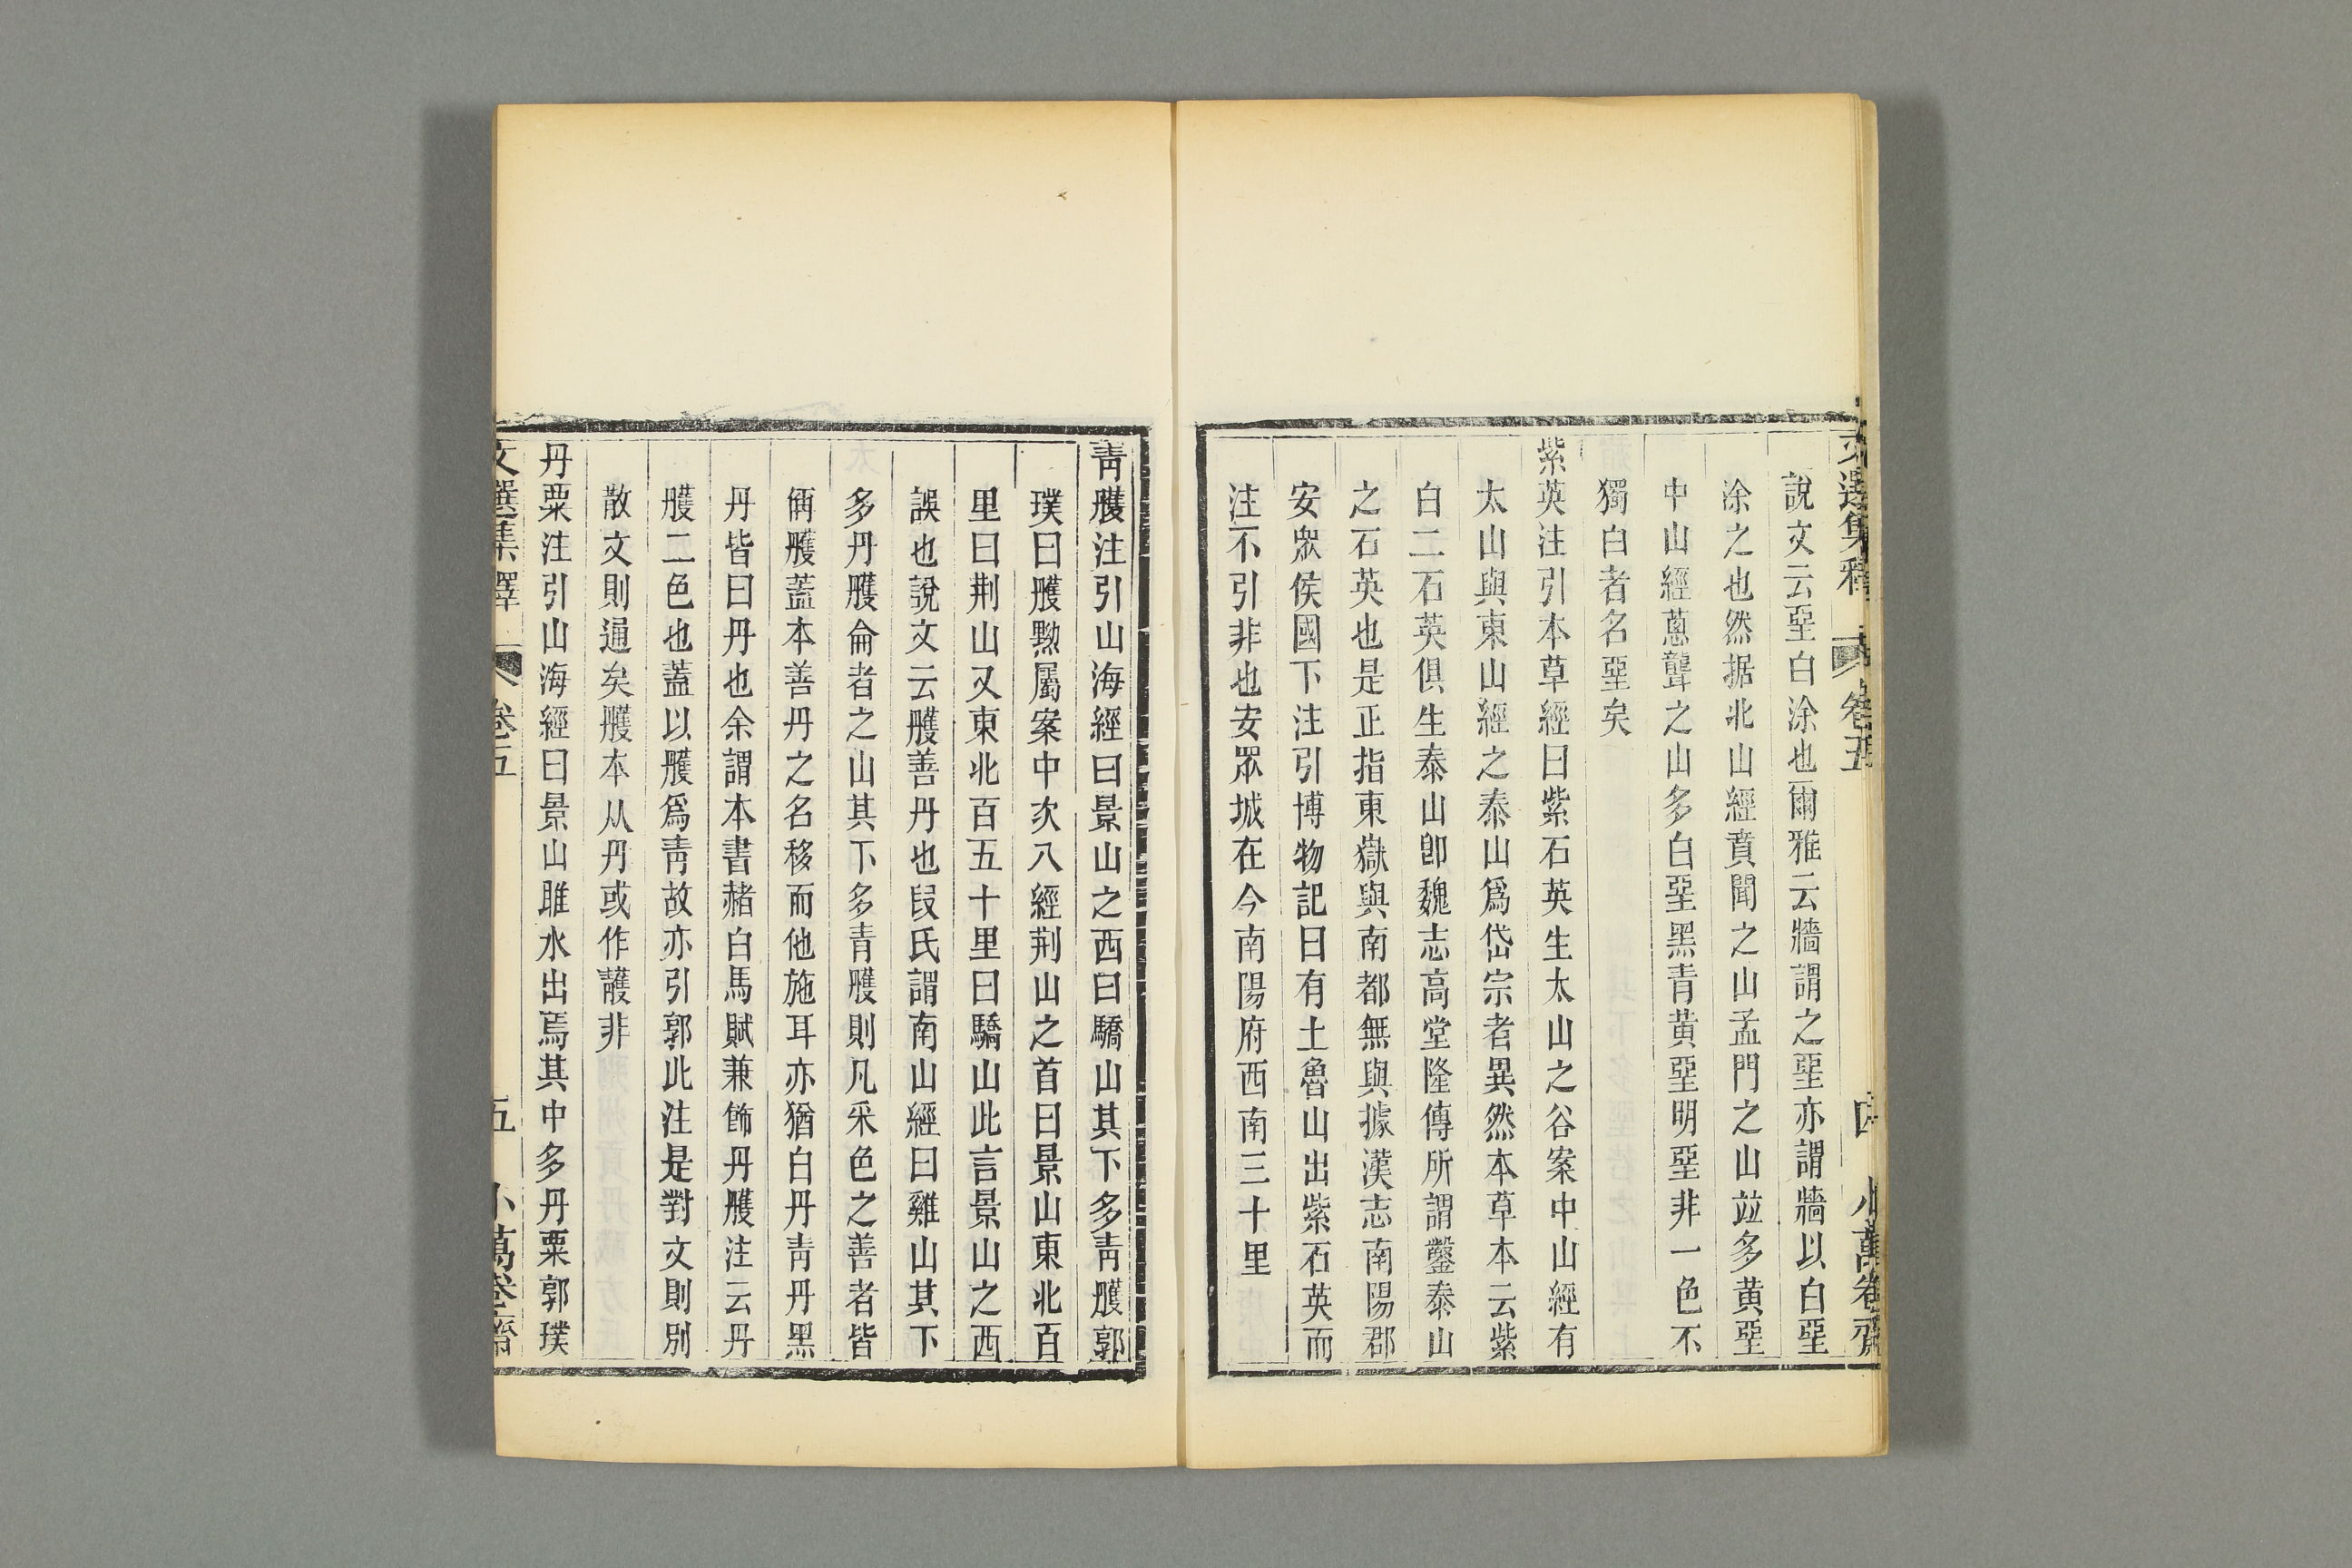 文選集釋 卷五 四 小萬卷齋
說文云堊白涂也爾雅云牆謂之堊亦謂牆以白堊
涂之也然据北山經賁聞之山孟門之山竝多黃堊
中山經蔥聾之山多白堊黑青黃堊明堊非一色不
獨白者名堊矣
紫英注引本草經曰紫石英生太山之谷案中山經有
太山與東山經之泰山爲岱宗者異然本草本云紫
白二石英俱生泰山卽魏志高堂隆傳所謂鑿泰山
之石英也是正指東嶽與南都無與據漢志南陽郡
安眾侯國下注引博物記曰有土魯山出紫石英而
注不引非也安眾城在今南陽府西南三十里
青雘注引山海經曰景山之西曰驕山其下多青雘郭
璞曰雘黝屬案中次八經荆山之首曰景山東北百
里曰荆山又東北百五十里曰驕山此言景山之西
誤也說文云雘善丹也段氏謂南山經曰雞山其下
多丹雘侖者之山其下多青雘則凡采色之善者皆
偁雘蓋本善丹之名移而他施耳亦猶白丹青丹黑
丹皆曰丹也余謂本書赭白馬賦兼飾丹雘注云丹
雘二色也蓋以雘爲青故亦引郭此注是對文則別
散文則通矣雘本从丹或作頀非
丹粟注引山海經曰景山雎水出焉其中多丹粟郭璞
文選集釋 卷五 五 小萬卷齋